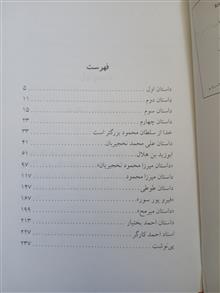 فهرست
داستان اول ۵
داستان دوم ۱۱
داستان سوم ۱۵
داستان چهارم ۲۳
خدا از سلطان محمود بزرگتر است ۳۳
داستان علی محمد نخجیریان ۴۱
ابوزید بن هلال ۵۱
«داستان میرزا محمود نخجیریان» ۹۷
داستان میرزا محمود ۱۱۷
داستان طوطی ۱۴۷
«فیرو پور سوره» ۱۶۷
«داستان میرمح» ۱۹۹
داستان احمد بختیار ۲۱۳
استاد احمد کارگر ۲۲۷
پی‌نوشت ۲۳۷